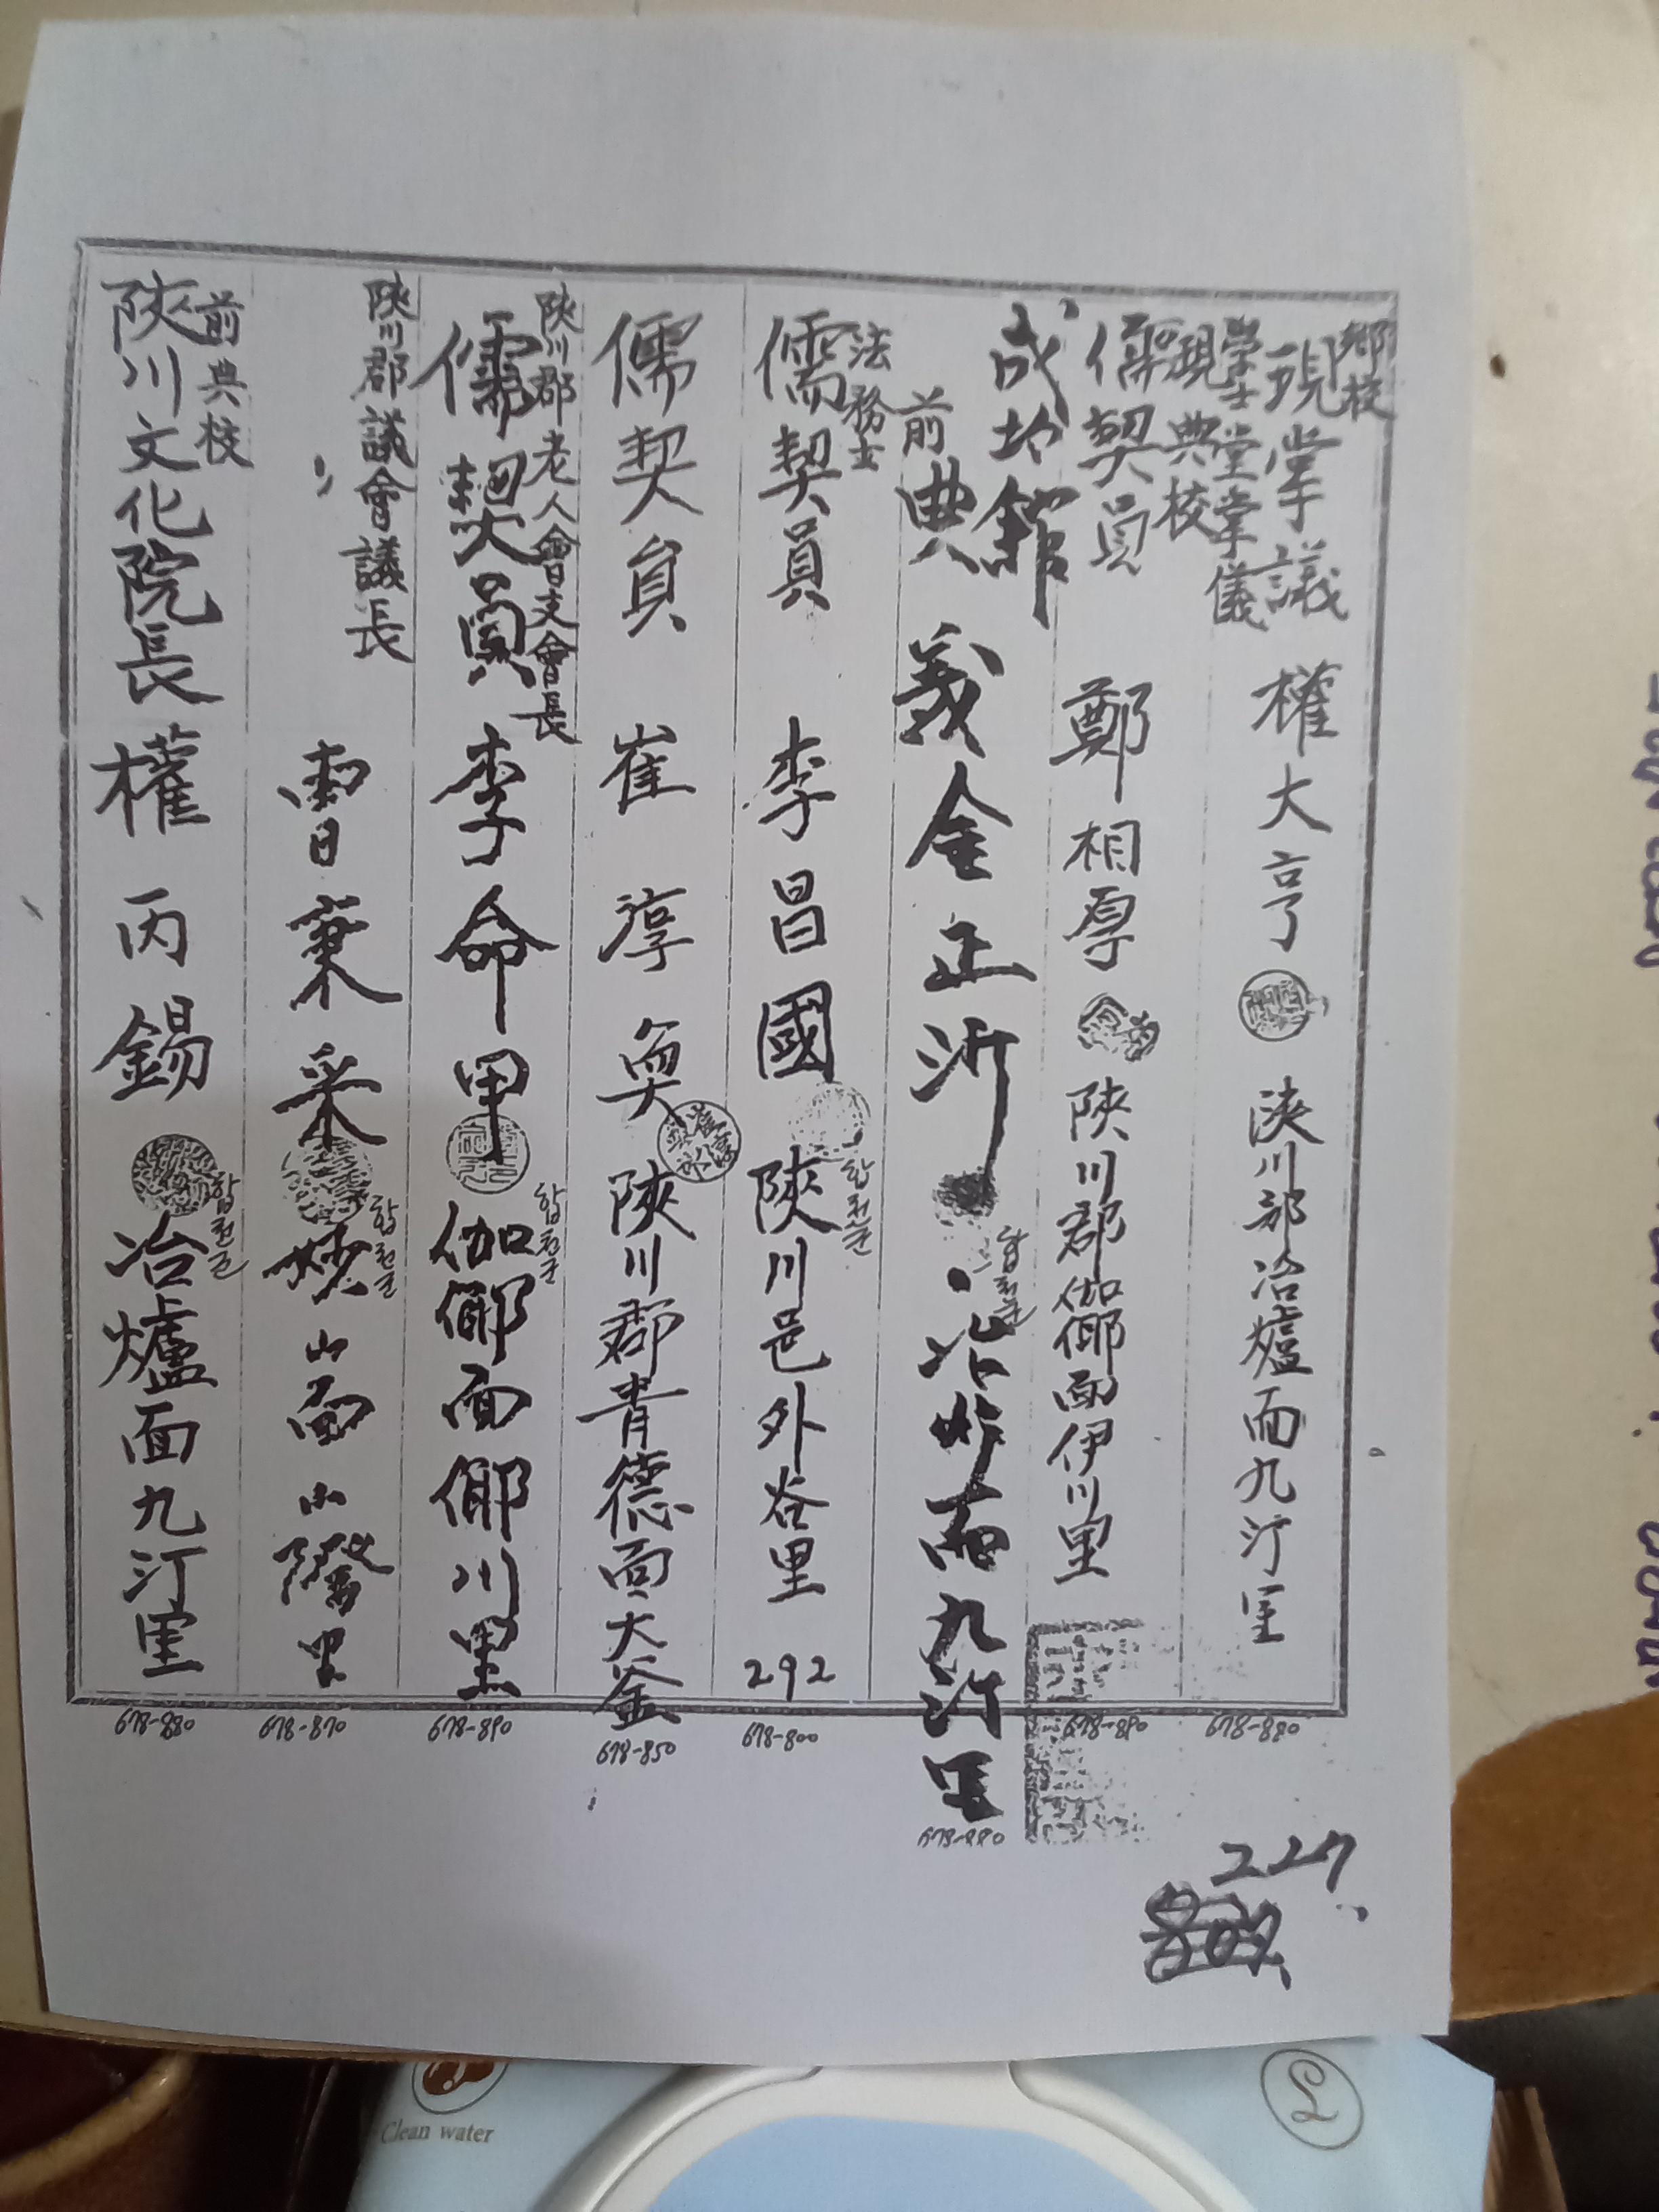 鄕校
現掌議 權大亨 陜川郡冶爐面九汀里
678-880
學士堂掌儀
現典校
儒契員 鄭相厚 陜川郡伽倻面伊川里
678-890
成均館
前典義 金正沂 冶炉面九汀里
합천군
678-880
法務士
儒契員 李昌國 陜川邑外谷里 292
합천군
678-800
儒契員 崔淳奐 陜川郡青德面大釜
678-850
陜川郡老人會支會長
儒契員 李命甲 伽倻面倻川里
합천군
678-890
陜川郡議會議長
曺秉采 妙山面山際里
합천군
678-870
前典校
陜川文化院長 權丙錫 冶爐面九汀里
합천군
678-880
227
Clean water